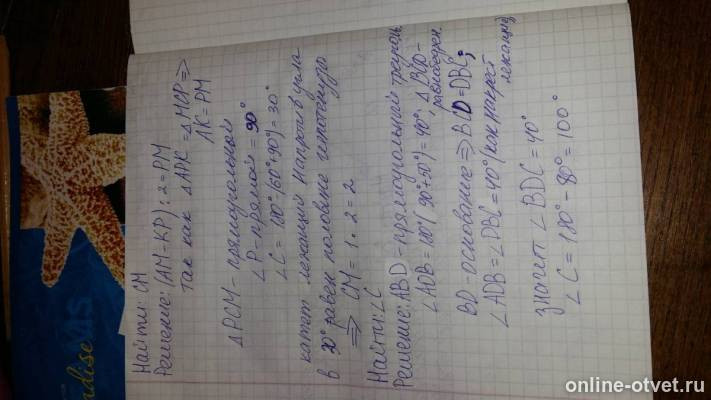 Найти: СМ
Решение: (АМ-КР):2=РМ
Так как △АРК = △МСР ⇒
АК=РМ
△РСМ - прямоугольной
∠Р-прямой = 90°
∠С = 180°(60°+90°)=30°
катет лежащий напротив угла
в 30° равен половине гипотенузо
⇒ СМ = 1·2=2
Найти: ∠С
Решение: АВD - прямоугольный треуголь
∠ADB=180°(90°+50°)=40°; △ BCD -
равнобедрен.
BD-основание ⇒ BCD=DBC;
∠ADB=∠DBC=40°(как накрест
лежащие)
значит ∠BDC=40°
∠С=180°-80°=100°
dise
online-otvet.ru